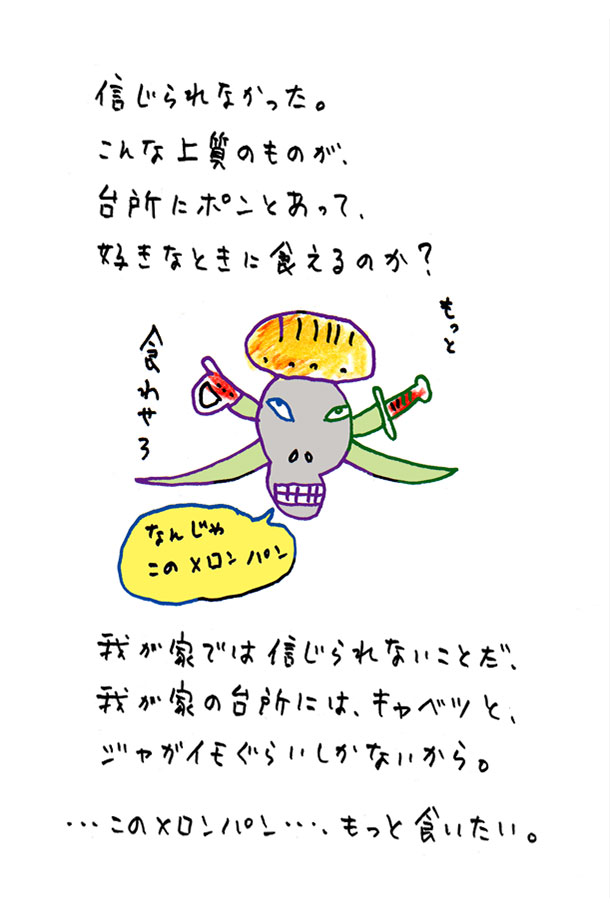 信じられなかった。
こんな上質のものが、
台所にポンとあって、
好きなときに食えるのか?
もっと
食わせろ
なんじゃ
このメロンパン
我が家では信じられないことだ、
我が家の台所には、キャベツと、
ジャガイモぐらいしかないから。
…このメロンパン…、もっと食いたい。